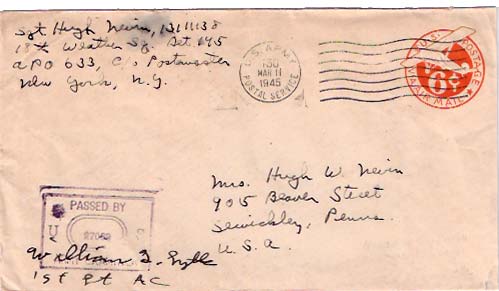 Sgt Hugh Nevin, 13111138
18th Weather Sq. Det. 195
APO 633, c/o Postmaster
New York, N.Y.
U.S. ARMY
130
MAR 11
1945
POSTAL SERVICE
U.S. POSTAGE
6¢
VIA AIR MAIL
Mrs. Hugh W. Nevin
905 Beaver Street
Sewickley, Penna.
U.S.A.
PASSED BY
U S
William
1st Lt AC